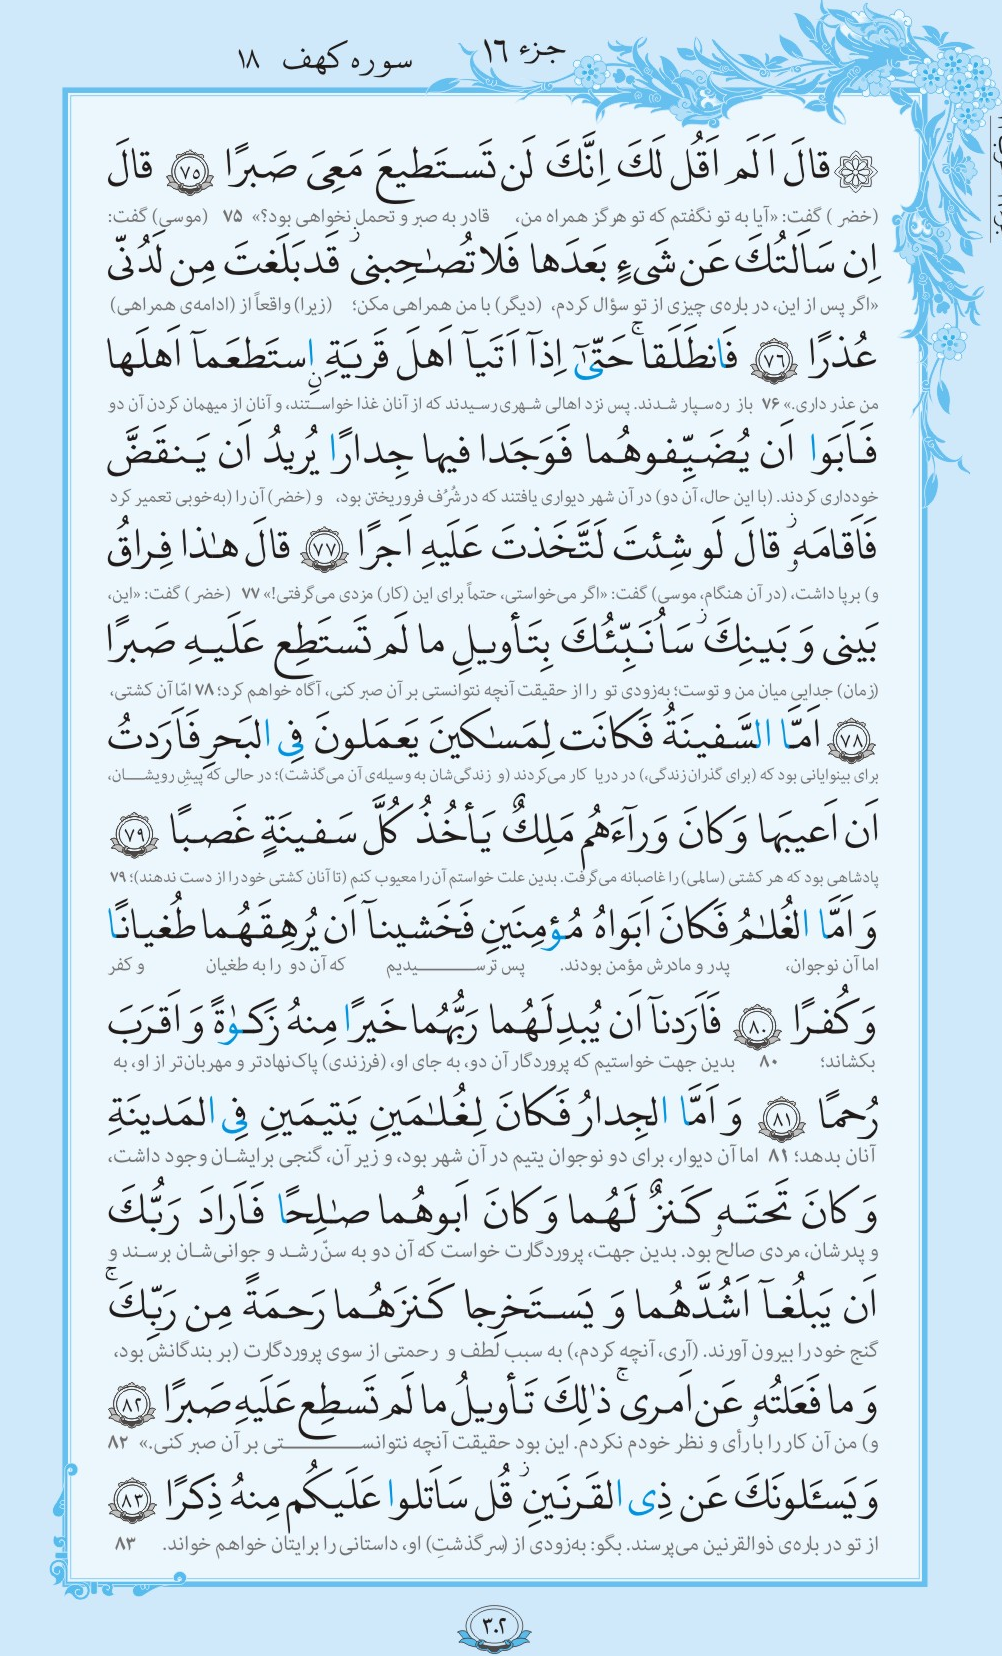 جزء ۱۶
سوره کهف ۱۸
قالَ اَلَم اَقُل لَكَ اِنَّكَ لَن تَستَطيعَ مَعِىَ صَبرًا ﴿۷۵﴾ قالَ
(خضر ) گفت: «آیا به تو نگفتم که تو هرگز همراه من، قادر به صبر و تحمل نخواهی بود؟» ۷۵ (موسی) گفت:
اِن سَاَلتُكَ عَن شَىءٍ بَعدَها فَلا تُصـٰحِبنى ز قَد بَلَغتَ مِن لَدُنّى
«اگر پس از این، در باره‌ی چیزی از تو سؤال کردم، (دیگر) با من همراهی مکن؛ (زیرا) واقعاً از (ادامه‌ی همراهی)
عُذرًا ﴿۷۶﴾ فَانطَلَقا ۚ حَتّىٰٓ اِذآ اَتَيآ اَهلَ قَريَةٍ ِن استَطعَمآ اَهلَها
من عذر داری.» ۷۶ باز ره‌سپار شدند. پس نزد اهالی شهری رسیدند که از آنان غذا خواستند، و آنان از میهمان کردن آن دو
فَاَبَوا اَن يُضَيِّفوهُما فَوَجَدا فيها جِدارًا يُريدُ اَن يَنقَضَّ
خودداری کردند. (با این حال، آن دو) در آن شهر دیواری یافتند که در شُرُف فروریختن بود، و (خضر) آن را (به‌خوبی تعمیر کرد
فَاَقامَهٗ ز قالَ لَو شِئتَ لَتَّخَذتَ عَلَيهِ اَجرًا ﴿۷۷﴾ قالَ هـٰذا فِراقُ
و) برپا داشت، (در آن هنگام، موسی) گفت: «اگر می‌خواستی، حتماً برای این (کار) مزدی می‌گرفتی!» ۷۷ (خضر ) گفت: «این،
بَينى وَ بَينِكَ ز سَاُنَبِّئُكَ بِتَأويلِ ما لَم تَستَطِع عَلَيهِ صَبرًا
(زمان) جدایی میان من و توست؛ به‌زودی تو را از حقیقت آنچه نتوانستی بر آن صبر کنی، آگاه خواهم کرد؛ ۷۸ امّا آن کشتی،
﴿۷۸﴾ اَمَّا السَّفينَةُ فَكانَت لِمَسـٰكينَ يَعمَلونَ فِى البَحرِ فَاَرَدتُ
برای بینوایانی بود که (برای گذران زندگی،) در دریا کار می‌کردند (و زندگی‌شان به وسیله‌ی آن می‌گذشت)؛ در حالی که پیشِ رویشان،
اَن اَعيبَها وَ كانَ وَرآءَهُم مَلِكٌ يَأخُذُ كُلَّ سَفينَةٍ غَصبًا ﴿۷۹﴾
پادشاهی بود که هر کشتی (سالمی) را غاصبانه می‌گرفت. بدین علت خواستم آن را معیوب کنم (تا آنان کشتی خود را از دست ندهند)؛ ۷۹
وَ اَمَّا الغُلـٰمُ فَكانَ اَبَواهُ مُؤمِنَينِ فَخَشينآ اَن يُرهِقَهُما طُغيانًا
اما آن نوجوان، پدر و مادرش مؤمن بودند. پس ترسیدیم که آن دو را به طغیان و کفر
وَ كُفرًا ﴿۸۰﴾ فَاَرَدنآ اَن يُبدِلَهُما رَبُّهُما خَيرًا مِنهُ زَكـوٰةً وَ اَقرَبَ
بکشاند؛ ۸۰ بدین جهت خواستیم که پروردگار آن دو، به جای او، (فرزندی) پاک‌نهادتر و مهربان‌تر از او، به
رُحمًا ﴿۸۱﴾ وَ اَمَّا الجِدارُ فَكانَ لِغُلـٰمَينِ يَتيمَينِ فِى المَدينَةِ
آنان بدهد؛ ۸۱ اما آن دیوار، برای دو نوجوان یتیم در آن شهر بود، و زیر آن، گنجی برایشان وجود داشت،
وَ كانَ تَحتَهٗ كَنزٌ لَهُما وَ كانَ اَبوهُما صـٰلِحًا فَاَرادَ رَبُّكَ
و پدرشان، مردی صالح بود. بدین جهت، پروردگارت خواست که آن دو به سنّ رشد و جوانی‌شان برسند و
اَن يَبلُغآ اَشُدَّهُما وَ يَستَخرِجا كَنزَهُما رَحمَةً مِن رَبِّكَ ۚ
گنج خود را بیرون آورند. (آری، آنچه کردم،) به سبب لطف و رحمتی از سوی پروردگارت (بر بندگانش بود،
وَ ما فَعَلتُهٗ عَن اَمرى ۚ ذٰلِكَ تَأويلُ ما لَم تَسطِع عَلَيهِ صَبرًا ﴿۸۲﴾
و) من آن کار را با رأی و نظر خودم نکردم. این بود حقیقت آنچه نتوانستی بر آن صبر کنی.» ۸۲
وَ يَسـَٔلونَكَ عَن ذِى القَرنَينِ ز قُل سَاَتلوا عَلَيكُم مِنهُ ذِكرًا ﴿۸۳﴾
از تو در باره‌ی ذوالقرنین می‌پرسند. بگو: به‌زودی از (سرگذشتِ) او، داستانی را برایتان خواهم خواند. ۸۳
۳۰۲